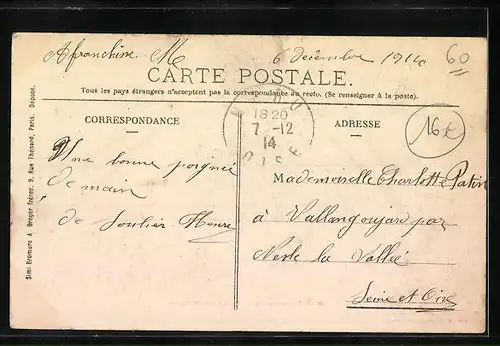 Affranchire M 6 Décembre 1914
60
CARTE POSTALE.
Tous les pays étrangers n'acceptent pas la correspondance au recto. (Se renseigner à la poste).
CORRESPONDANCE
ADRESSE
18 20
7 -12
14
OISE
16 E
Une bonne poignée
de main
de Soulier Henri
Mademoiselle Charlotte Patin
à Vallangoujard par
Nesle la Vallée
Seine et Oise
Simi-Bromure A. Breger frères, 9, Rue Thénard, Paris. Déposé.